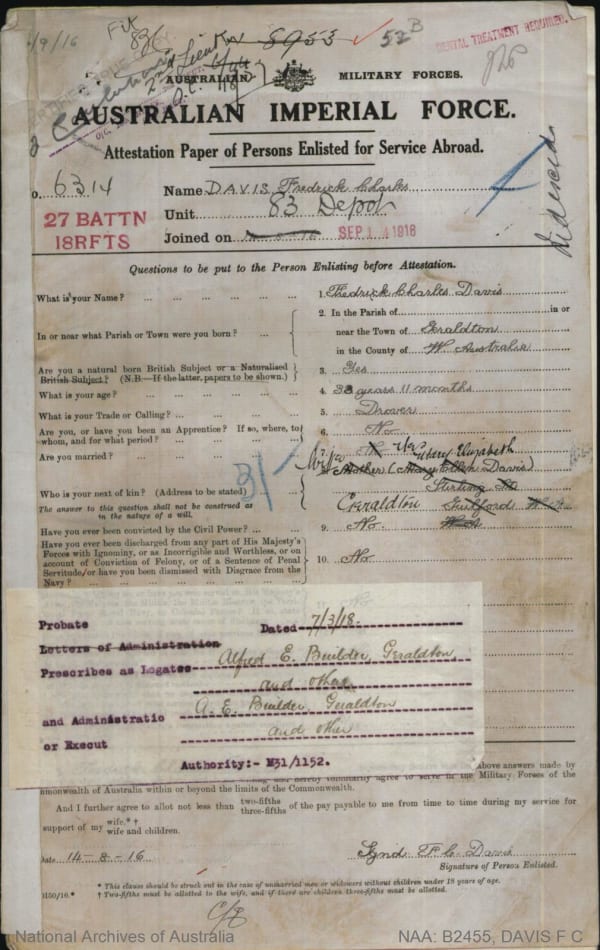 4/9/16
Fit
8953
52B
DENTAL TREATMENT REQUIRED.
2nd Lieut
AUSTRALIAN MILITARY FORCES.
AUSTRALIAN IMPERIAL FORCE.
Attestation Paper of Persons Enlisted for Service Abroad.
o. 6314 Name DAVIS, Fredrick Charles
27 BATTN
18RFTS
Unit 83 Depot
Joined on SEP 1 4 1916
Deceased
Questions to be put to the Person Enlisting before Attestation.
What is your Name? ... 1. Fredrick Charles Davis
In or near what Parish or Town were you born? ... 2. In the Parish of in or
near the Town of Geraldton
in the County of W. Australia
Are you a natural born British Subject or a Naturalised
British Subject? (N.B.—If the latter, papers to be shown.) 3. Yes
What is your age? ... 4. years 11 months
What is your Trade or Calling? ... 5. Drover
Are you, or have you been an Apprentice? If so, where, to
whom, and for what period? ... 6. No
Are you married? ...
Wife Mary Elizabeth
Mother (Mary Ellen Davis)
Who is your next of kin? (Address to be stated)
Stirling St
The answer to this question shall not be construed as
in the nature of a will.
31
Geraldton Guildford W.A.
Have you ever been convicted by the Civil Power? ... 9. No.
Have you ever been discharged from any part of His Majesty's
Forces with Ignominy, or as Incorrigible and Worthless, or on
account of Conviction of Felony, or of a Sentence of Penal
Servitude, or have you been dismissed with Disgrace from the
Navy? ... 10. No
Probate Dated 7/3/18.
Letters of Administration
Prescribes as Legatee Alfred E. Builder, Geraldton,
and other
and Administratio A. E. Builder, Geraldton
or Execut and other
Authority:- M31/1152.
above answers made by
and hereby voluntarily agree to serve in the Military Forces of the
monwealth of Australia within or beyond the limits of the Commonwealth.
And I further agree to allot not less than two-fifths
three-fifths of the pay payable to me from time to time during my service for
support of my wife.*†
wife and children.
Date 14-8-16 Sgnd F C. Davis
Signature of Person Enlisted.
* This clause should be struck out in the case of unmarried men or widowers without children under 18 years of age.
† Two-fifths must be allotted to the wife, and if there are children three-fifths must be allotted.
National Archives of Australia
NAA: B2455, DAVIS F C